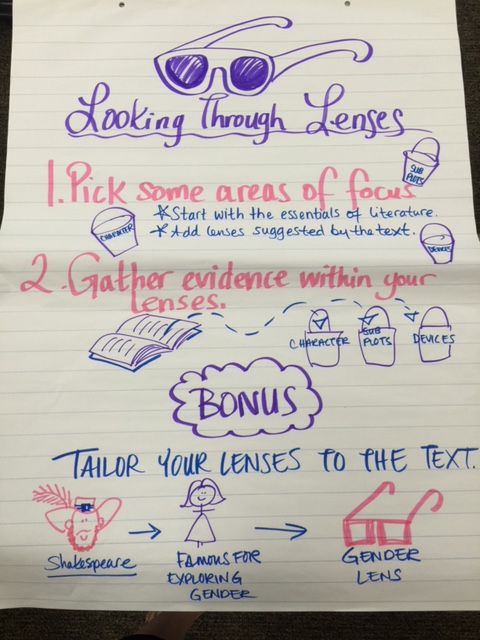 Looking Through Lenses
SUB
PLOTS
1. Pick some areas of focus
* Start with the essentials of literature.
* Add lenses suggested by the text.
CHARACTER
DEVICES
2. Gather evidence within your
lenses.
CHARACTER
SUB
PLOTS
DEVICES
BONUS
TAILOR YOUR LENSES TO THE TEXT.
Shakespeare
FAMOUS FOR
EXPLORING
GENDER
GENDER
LENS